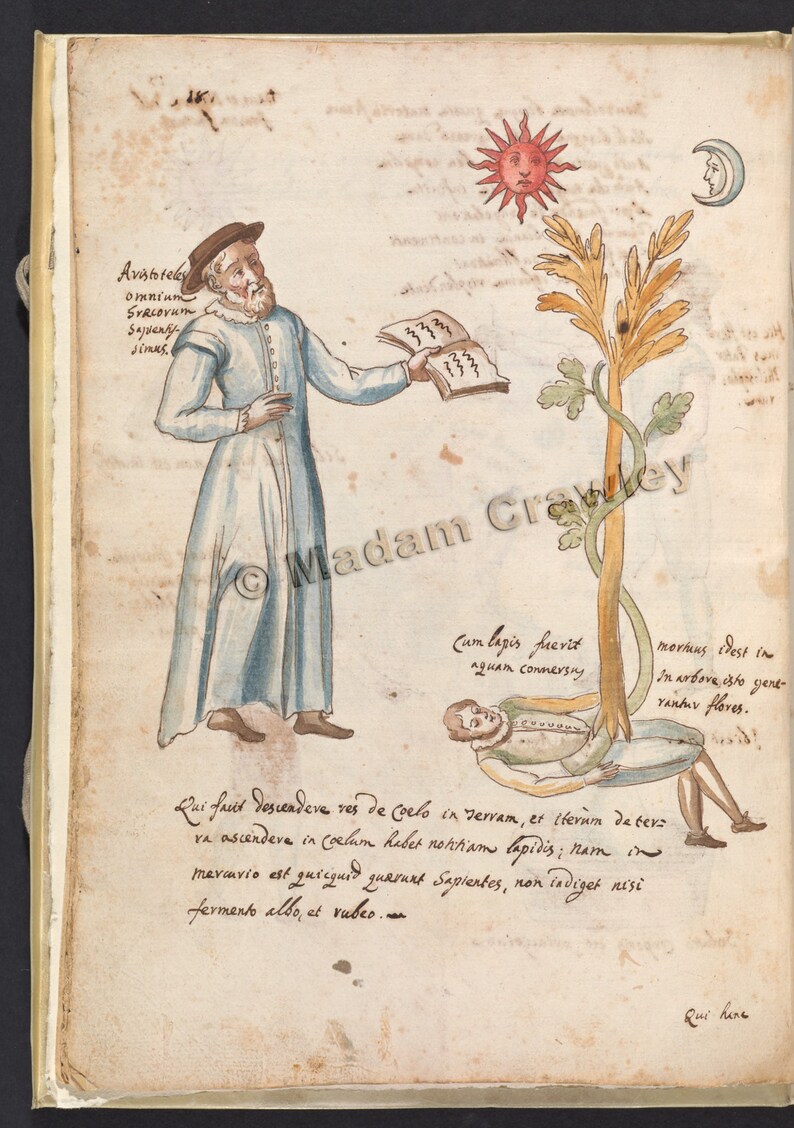 18.
Aristoteles
omnium
Græcorum
Sapientis-
simus.
© Madam Crawley
Cum lapis fuerit
aquam conversus
mortuus idest in
In arbore isto gene-
rantur flores.
Qui facit descendere res de Coelo in Terram, et iterùm de ter-
ra ascendere in Coelum habet notitiam lapidis; nam in
mercurio est quicquid quærunt Sapientes, non indiget nisi
fermento albo, et rubeo.
Qui hanc